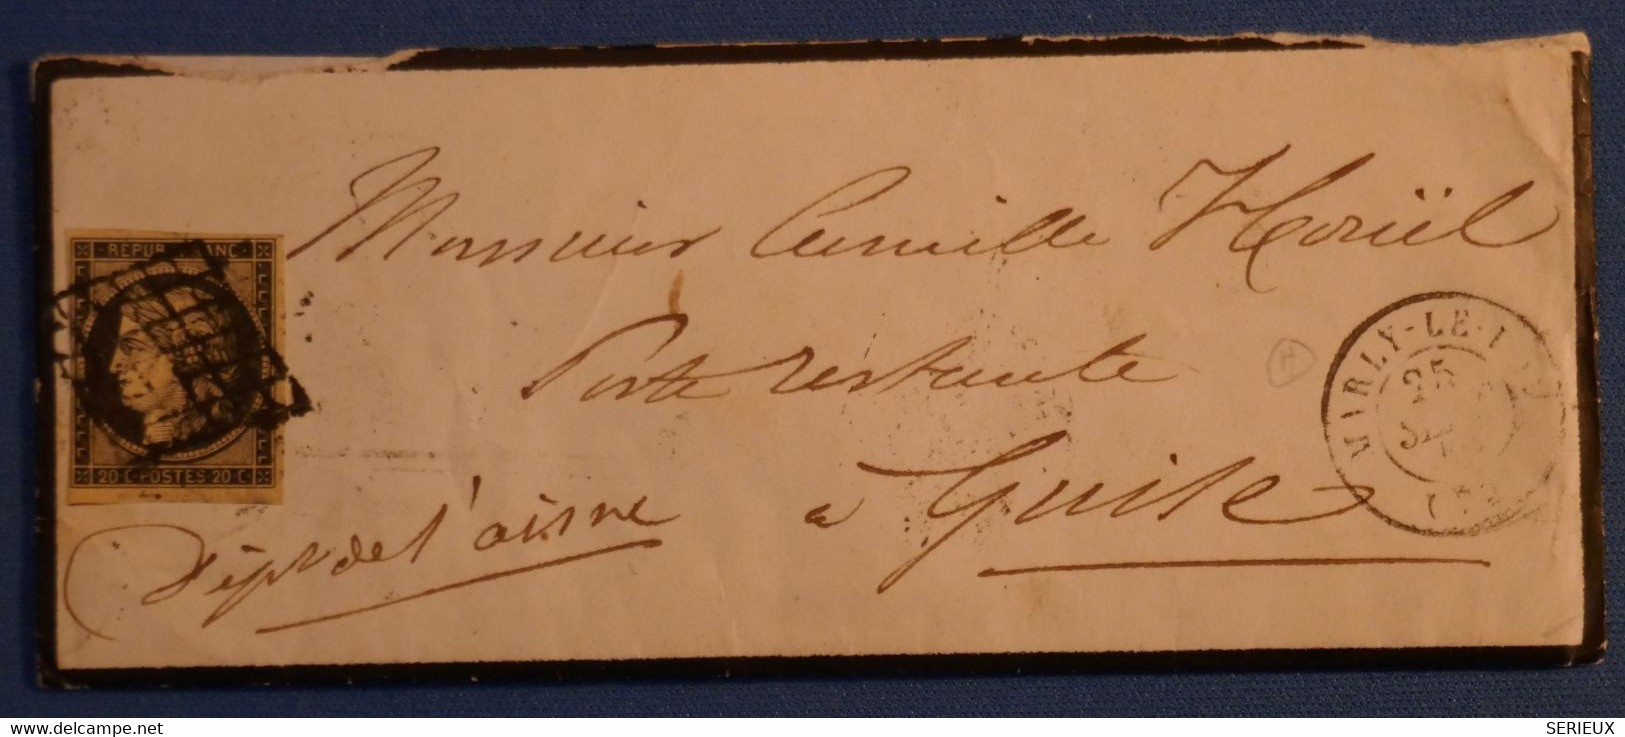 Monsieur Camille
Poste restante
a Guise
Dépt de l'aisne
REPUB FRANC
20·C·POSTES·20·C
MARLY-LE-
25
delcampe.net
SERIEUX